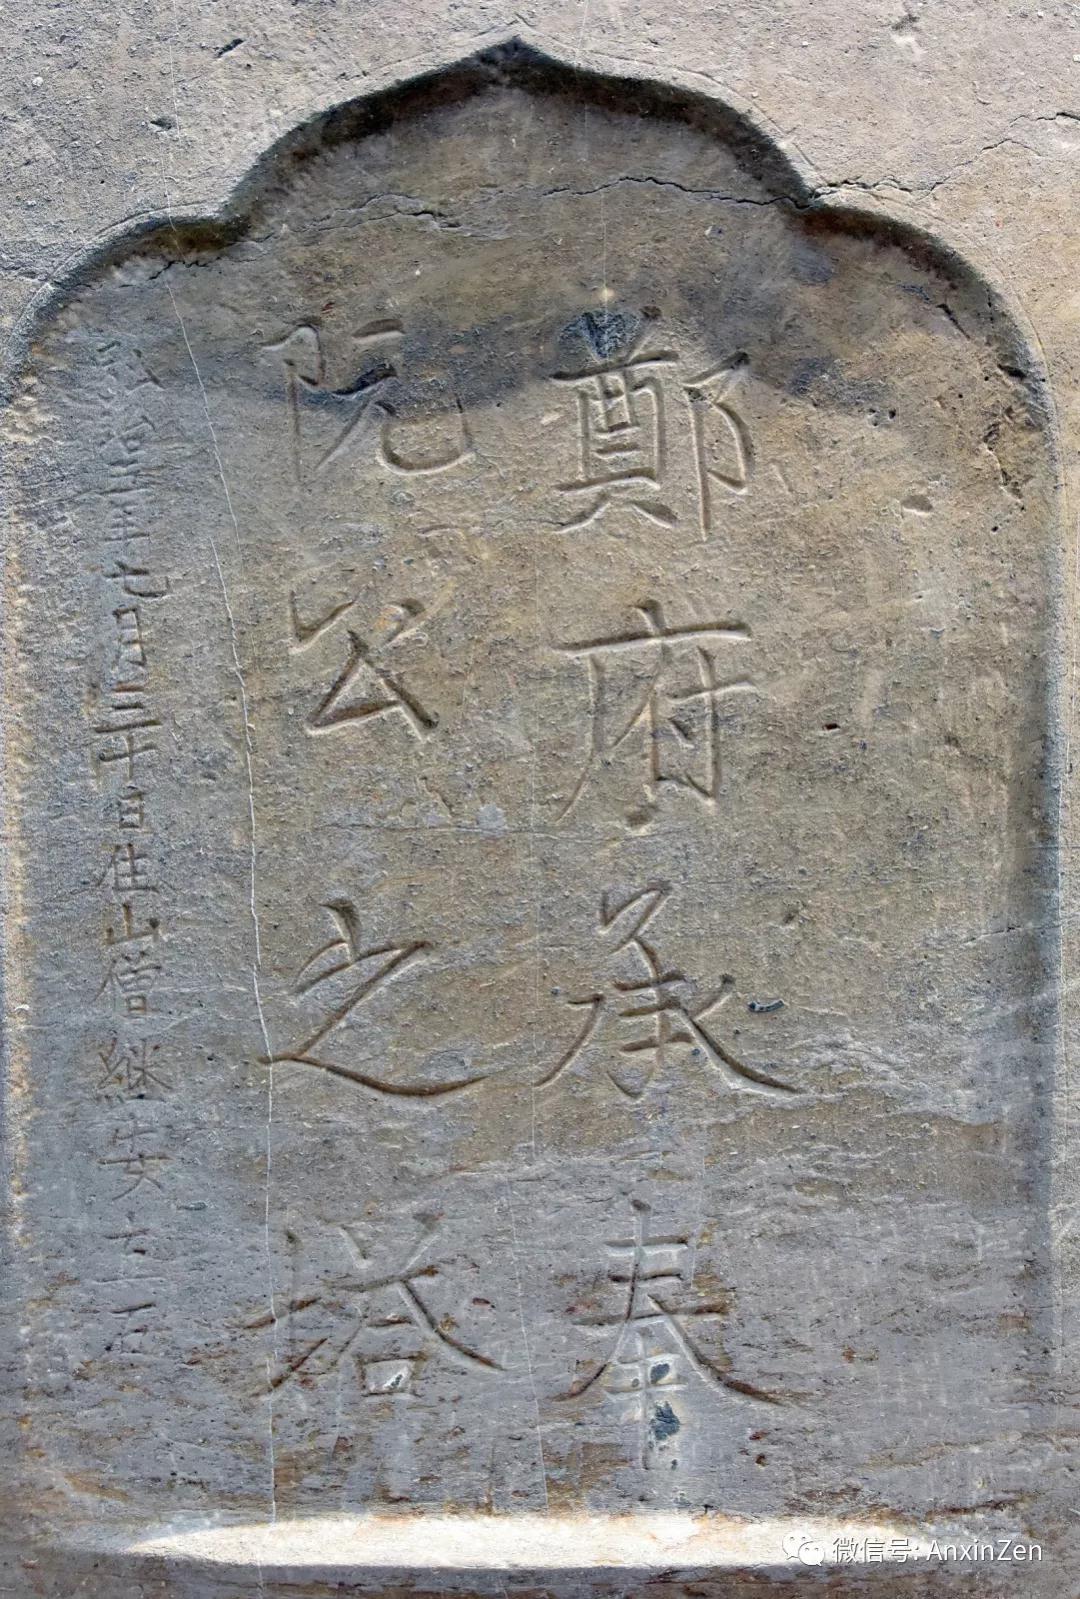 鄭府承奉
阮公之塔
弘治三年七月三十日住山僧継安立石
微信号: AnxinZen